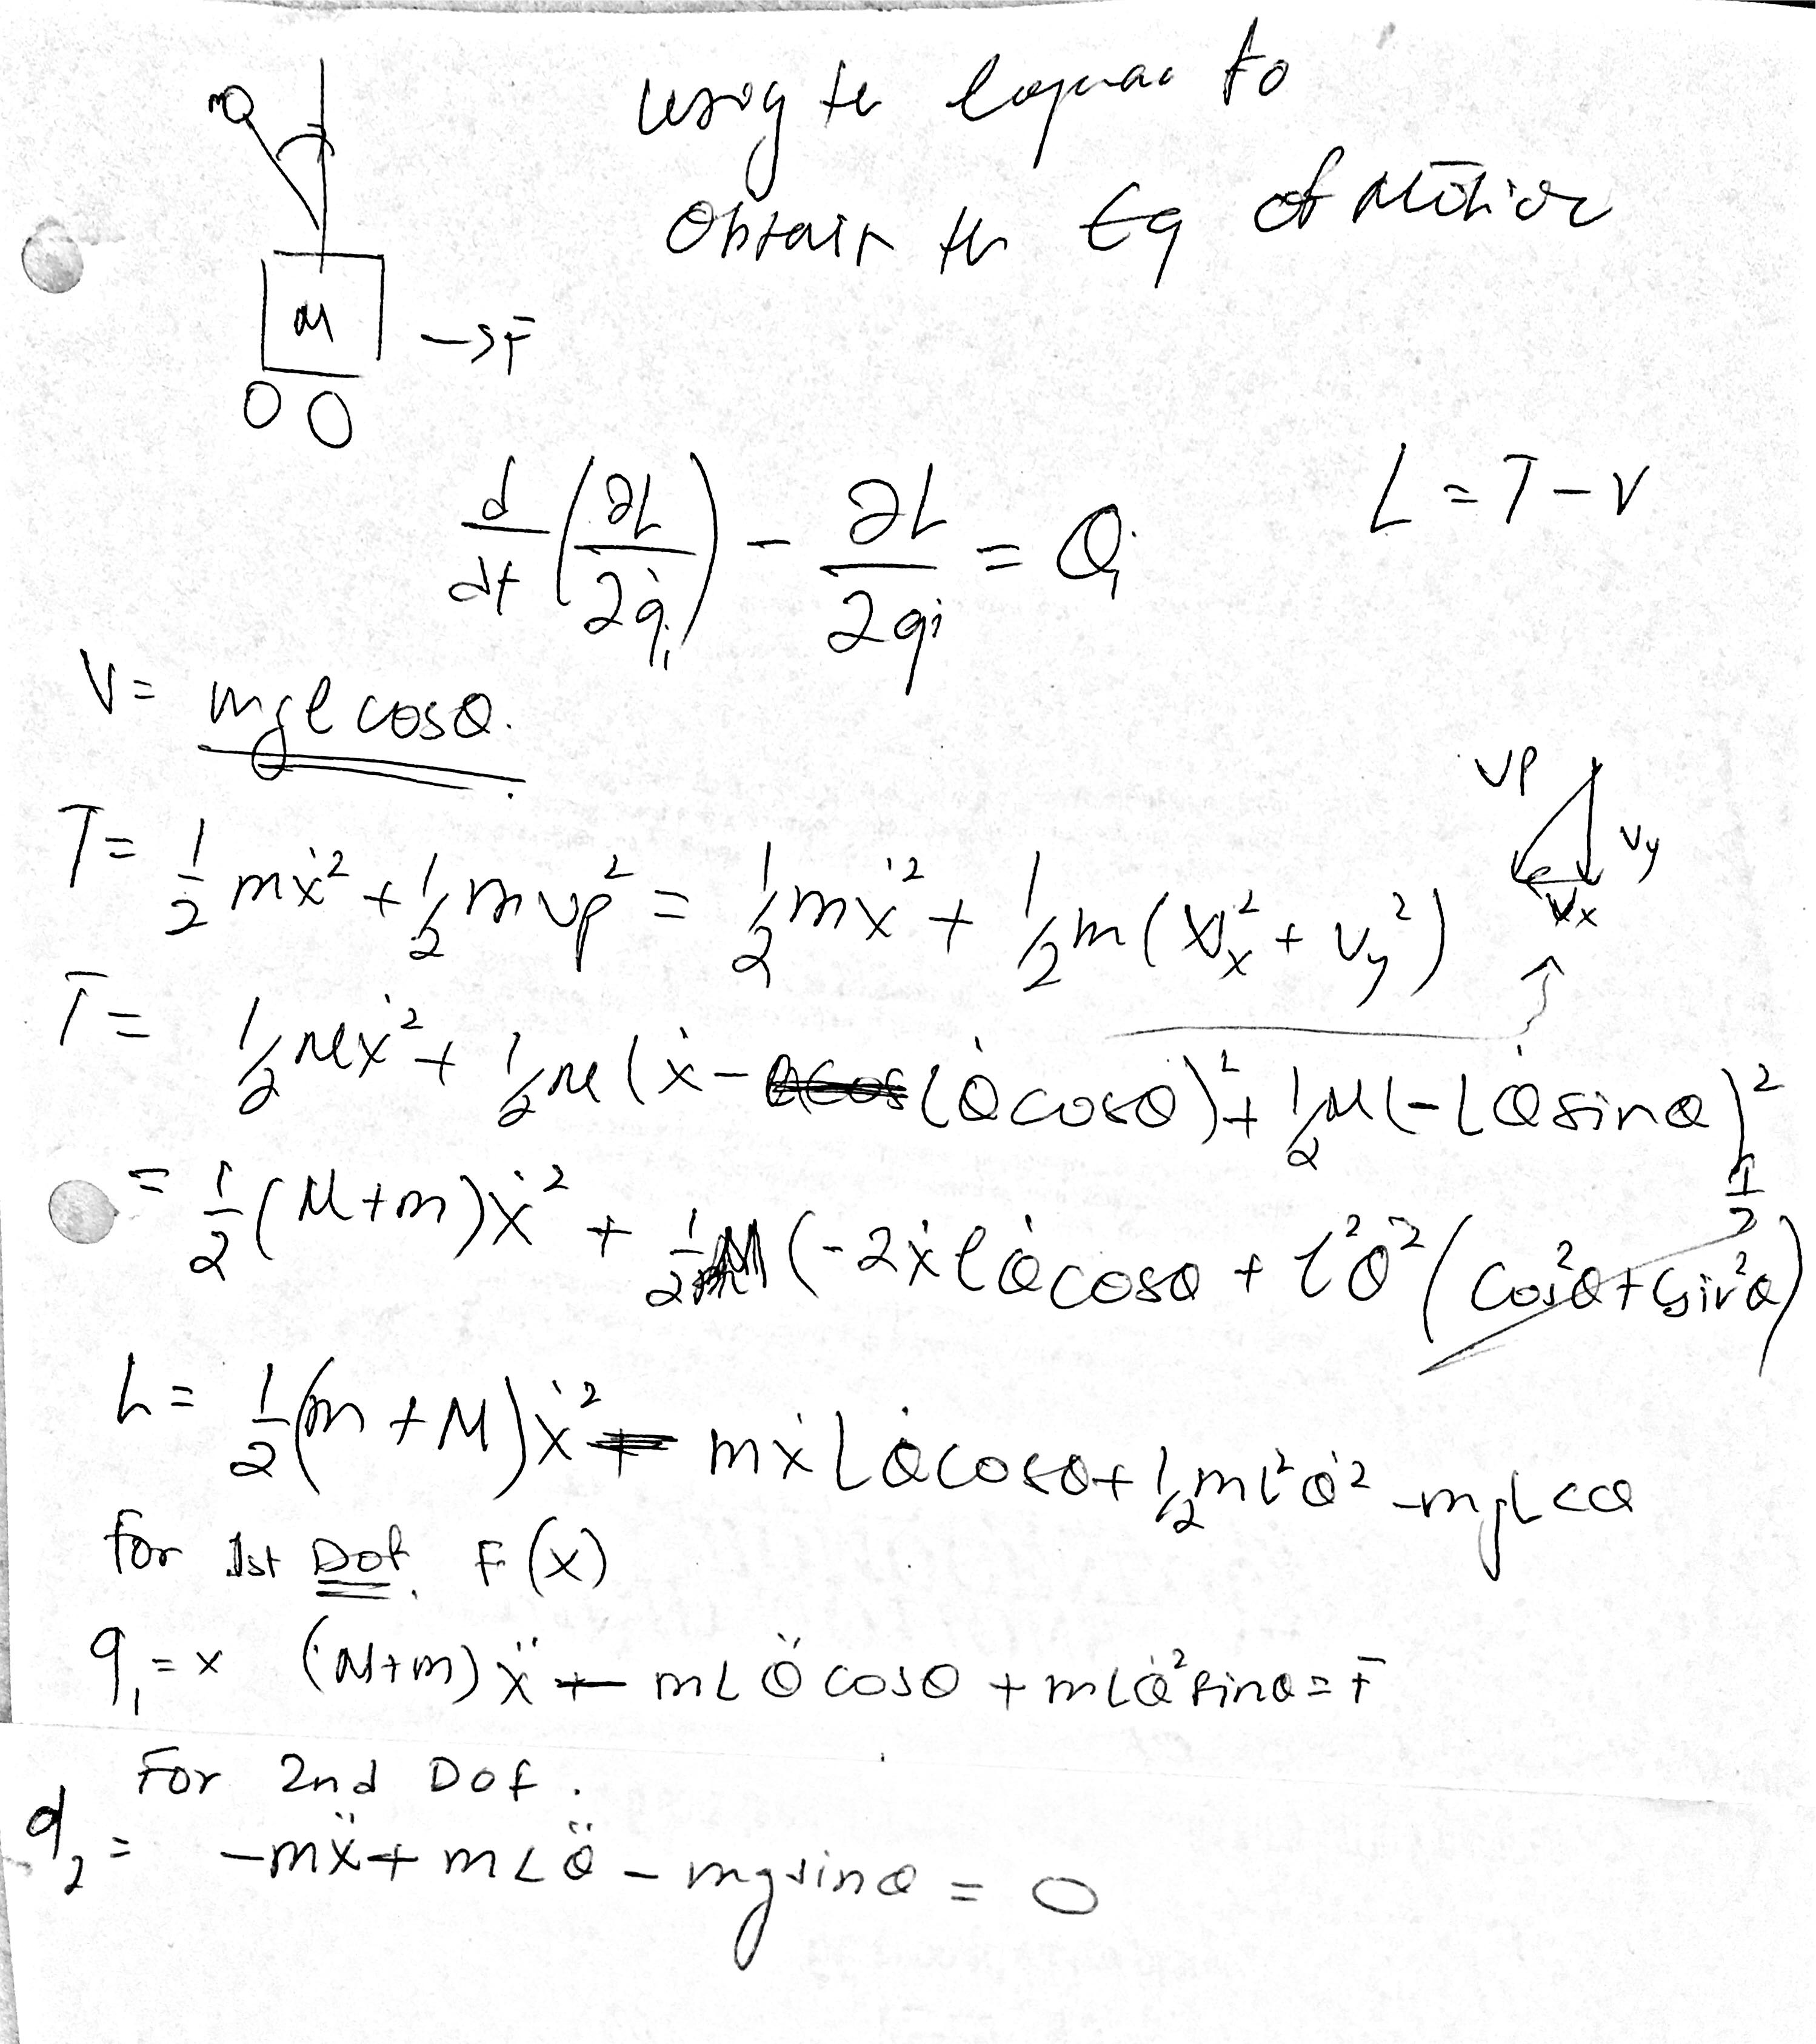 using the Lagrange to
obtain the Eq of Motion
m
M → F
d/dt (∂L/∂q̇i) - ∂L/∂qi = Qi
L = T - V
V = mgl cosθ.
vp vy vx
T = 1/2 mẋ² + 1/2 m vp² = 1/2 mẋ² + 1/2 m (Vx² + Vy²)
T = 1/2 Mẋ² + 1/2 m (ẋ - Lθ̇ cosθ)² + 1/2 M (-Lθ̇ sinθ)²
= 1/2 (M+m) ẋ² + 1/2 M (-2ẋlθ̇ cosθ + l²θ̇² (cos²θ + sin²θ) 1/2
L = 1/2 (m+M) ẋ² - mẋLθ̇ cosθ + 1/2 ml²θ̇² - mgLcθ
For 1st Dof. F(x)
q1 = x (M+m) ẍ - mLθ̈ cosθ + mLθ̇² sinθ = F
For 2nd Dof.
q2 = -mẍ + mLθ̈ - mg sinθ = 0